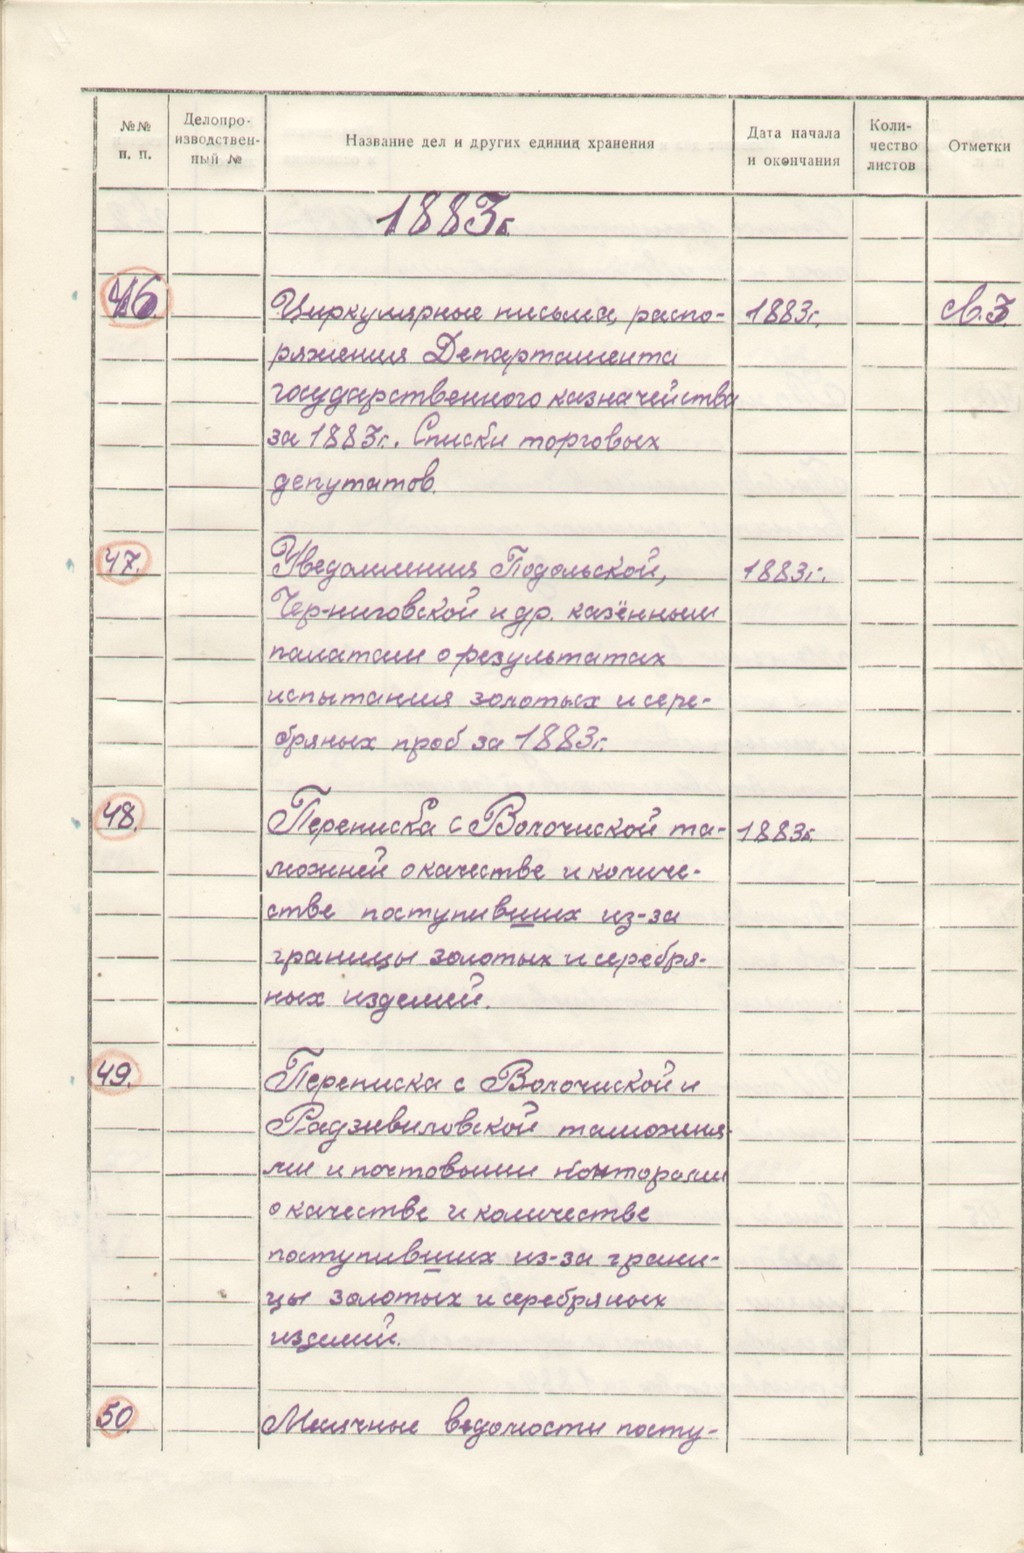 №№ п. п.
Делопро-
изводствен-
ный №
Название дел и других единиц хранения
Дата начала
и окончания
Коли-
чество
листов
Отметки
1883г.
46. Циркулярные письма, распо- 1883г. св.3.
ряжения Департамента
государственного казначейства
за 1883г. Списки торговых
депутатов.
47. Уведомления Подольской, 1883г.
Черниговской и др. казённым
палатам о результатах
испытания золотых и сере-
бряных проб за 1883г.
48. Переписка с Волочиской та- 1883г.
можней о качестве и количе-
стве поступивших из-за
границы золотых и серебря-
ных изделий.
49. Переписка с Волочиской и
Радзивиловской таможня-
ми и почтовыми конторами
о качестве и количестве
поступивших из-за грани-
цы золотых и серебряных
изделий.
50. Месячные ведомости посту-